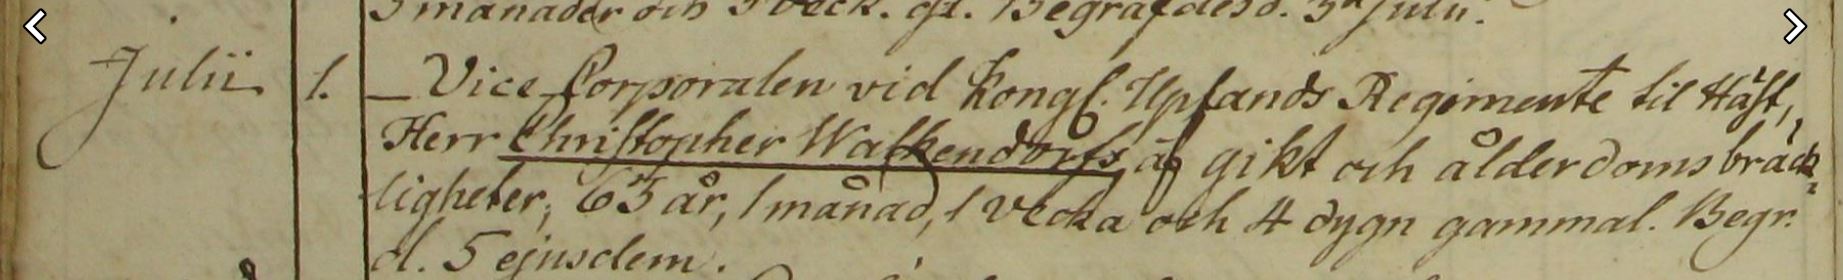 3 månader och 3 veck. gl. Begrafdes d. 3 Julii.
Julii 1. Vice Corporalen vid Kongl. Uplands Regimente til Häst,
Herr Christopher Walkendorfs af gikt och ålderdoms bräck-
ligheter, 63 år, 1 månad, 1 vecka och 4 dygn gammal. Begr.
d. 5 ejusdem.